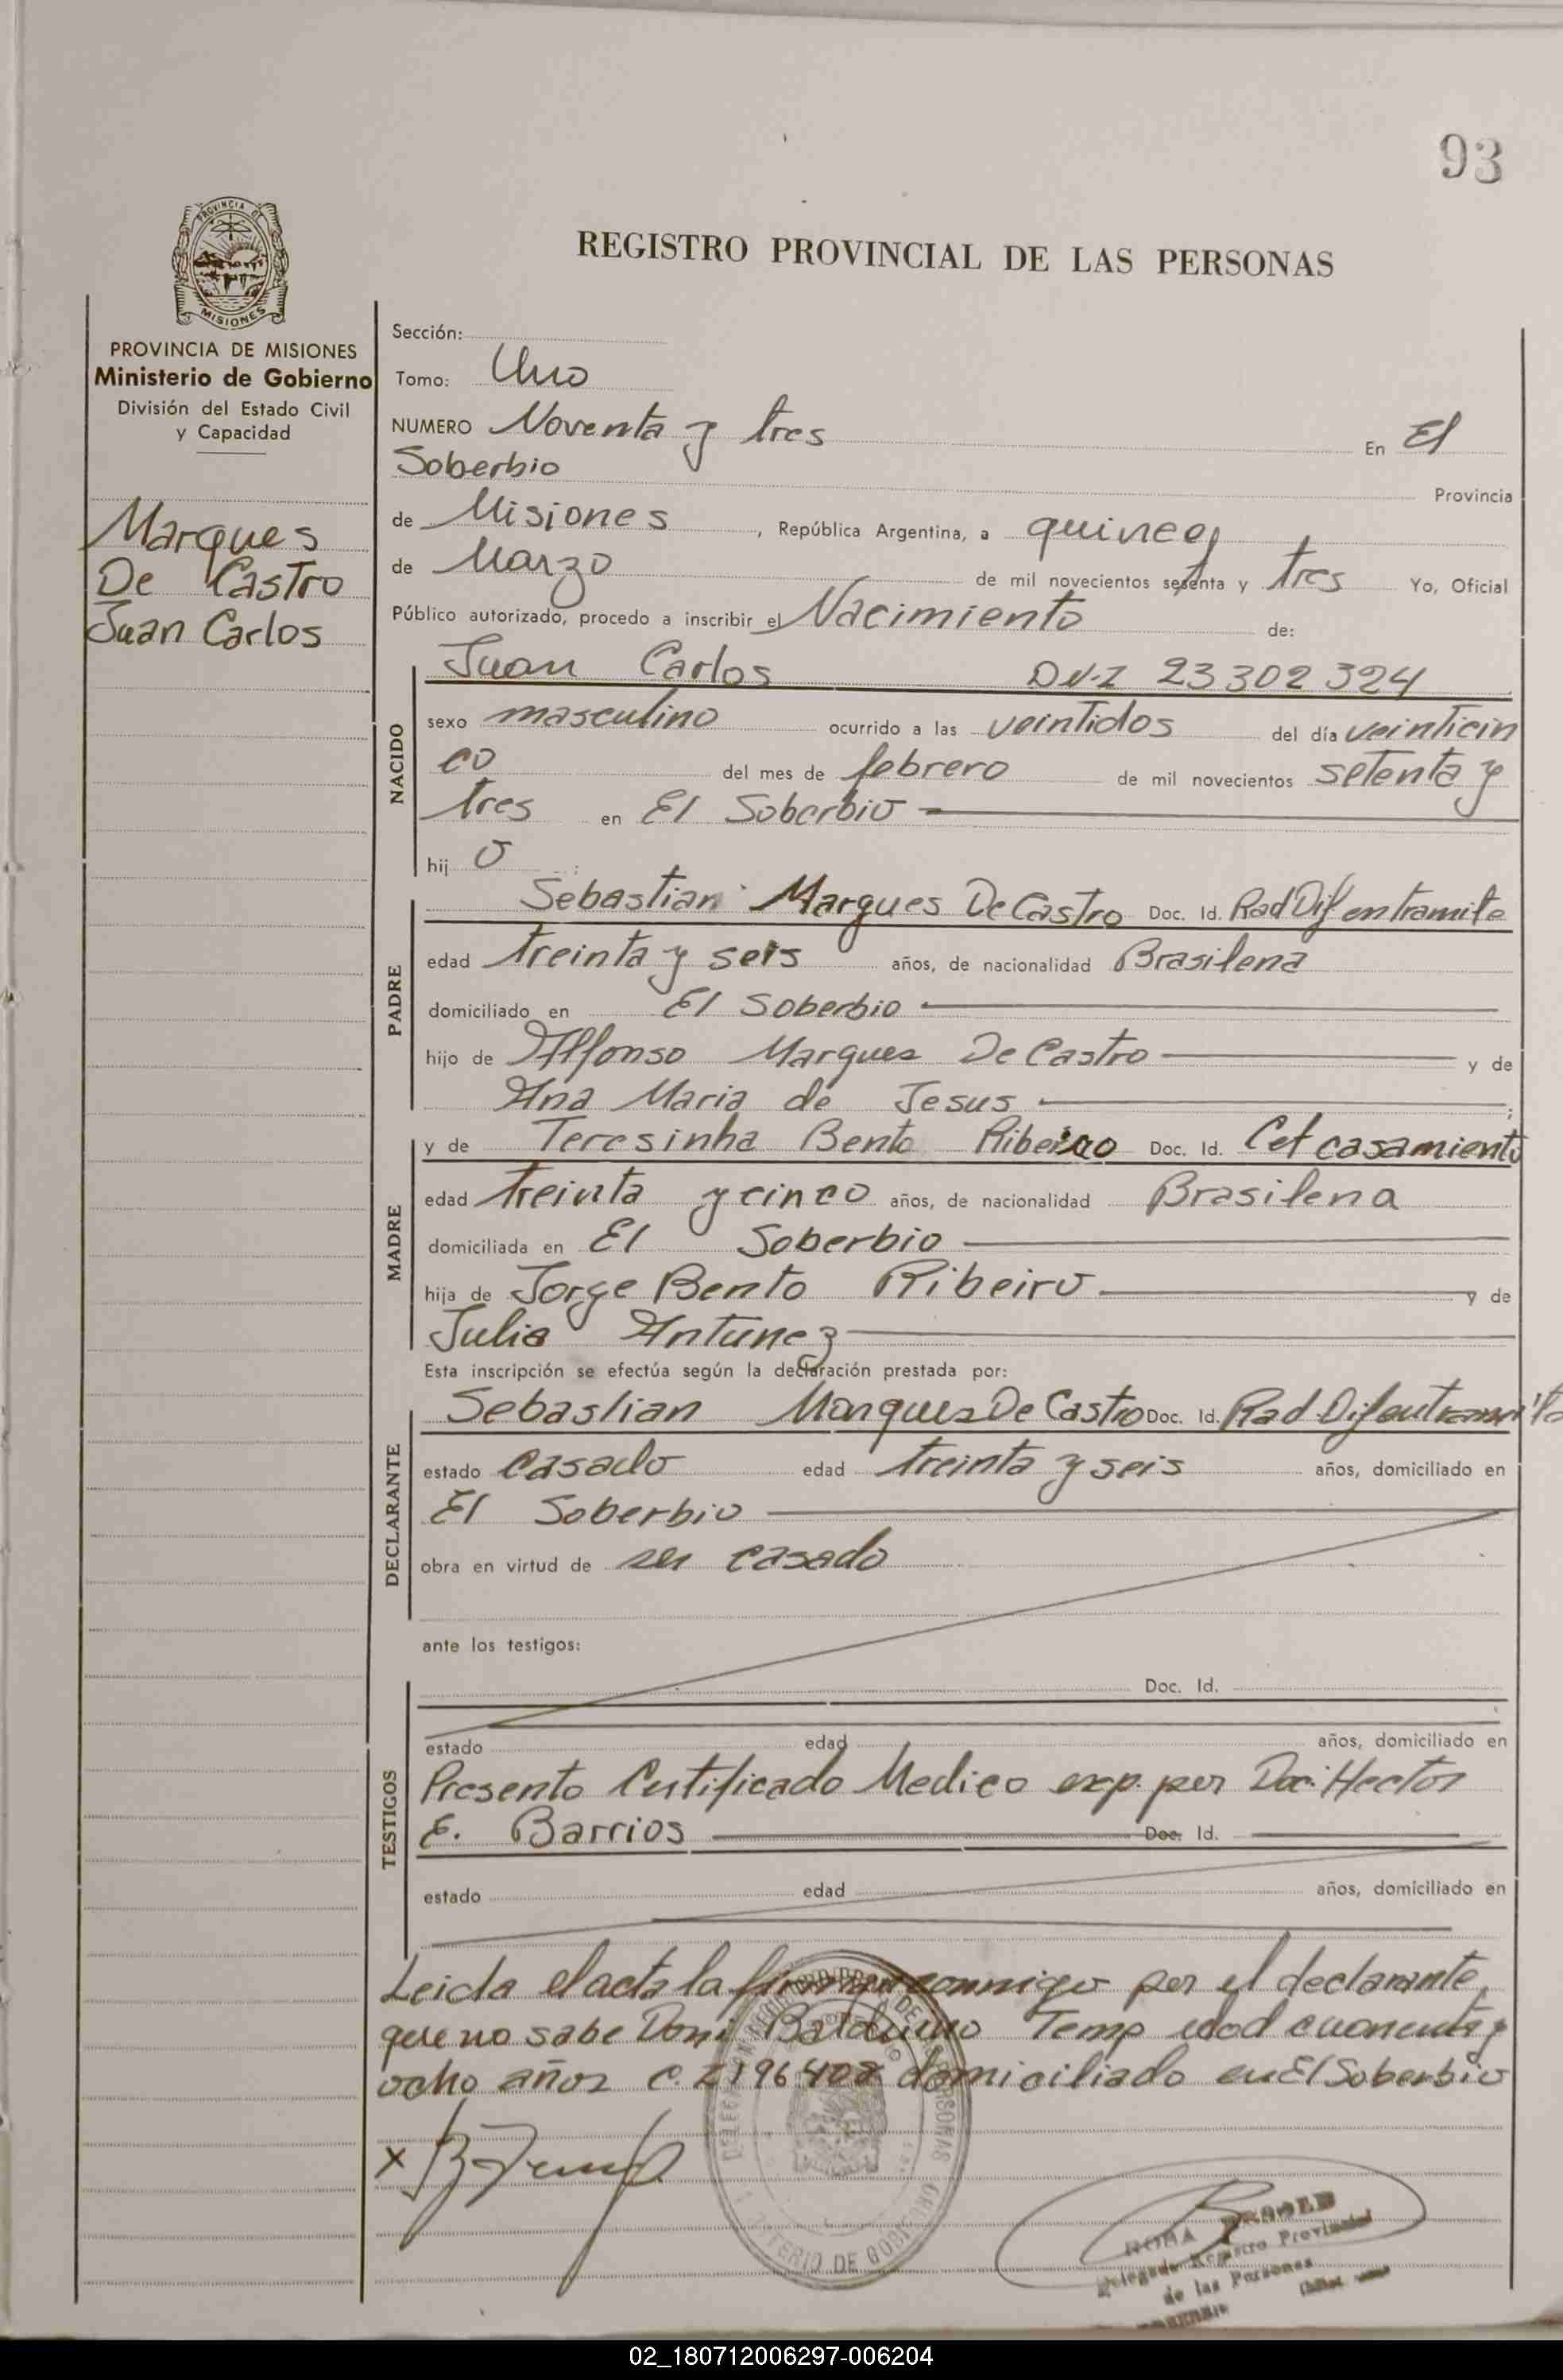 93
PROVINCIA DE
MISIONES
REGISTRO PROVINCIAL DE LAS PERSONAS
PROVINCIA DE MISIONES
Ministerio de Gobierno
División del Estado Civil
y Capacidad
Marques
De Castro
Juan Carlos
Sección:
Tomo: Uno
NUMERO Noventa y tres En El
Soberbio Provincia
de Misiones, República Argentina, a quince
de Marzo de mil novecientos setenta y tres Yo, Oficial
Público autorizado, procedo a inscribir el Nacimiento de:
Juan Carlos D.N.I 23302324
NACIDO
sexo masculino ocurrido a las veintidos del día veinticin
co del mes de febrero de mil novecientos setenta y
tres en El Soberbio
hijo
PADRE
Sebastian Marques De Castro Doc. Id. Rad Dif en tramite
edad treinta y seis años, de nacionalidad Brasilena
domiciliado en El Soberbio
hijo de Alfonso Marques De Castro y de
Ana Maria de Jesus;
MADRE
y de Teresinha Bento Ribeiro Doc. Id. Cet casamiento
edad treinta y cinco años, de nacionalidad Brasilena
domiciliada en El Soberbio
hija de Jorge Bento Ribeiro y de
Julia Antunez
Esta inscripción se efectúa según la declaración prestada por:
DECLARANTE
Sebastian Marques De Castro Doc. Id. Rad Dif en tramite
estado casado edad treinta y seis años, domiciliado en
El Soberbio
obra en virtud de ser casado
ante los testigos:
TESTIGOS
Doc. Id.
estado edad años, domiciliado en
Presento Certificado Medico exp. por Doc. Hector
E. Barrios Doc. Id.
estado edad años, domiciliado en
Leida el acta la firma conmigo por el declarante
que no sabe Don Balduino Temp edad cuarenta y
ocho años C. domiciliado en El Soberbio
x
DE LAS PERSONAS
DE GOBIERNO
Delegada Registro Provincial
de las Personas
02_180712006297-006204